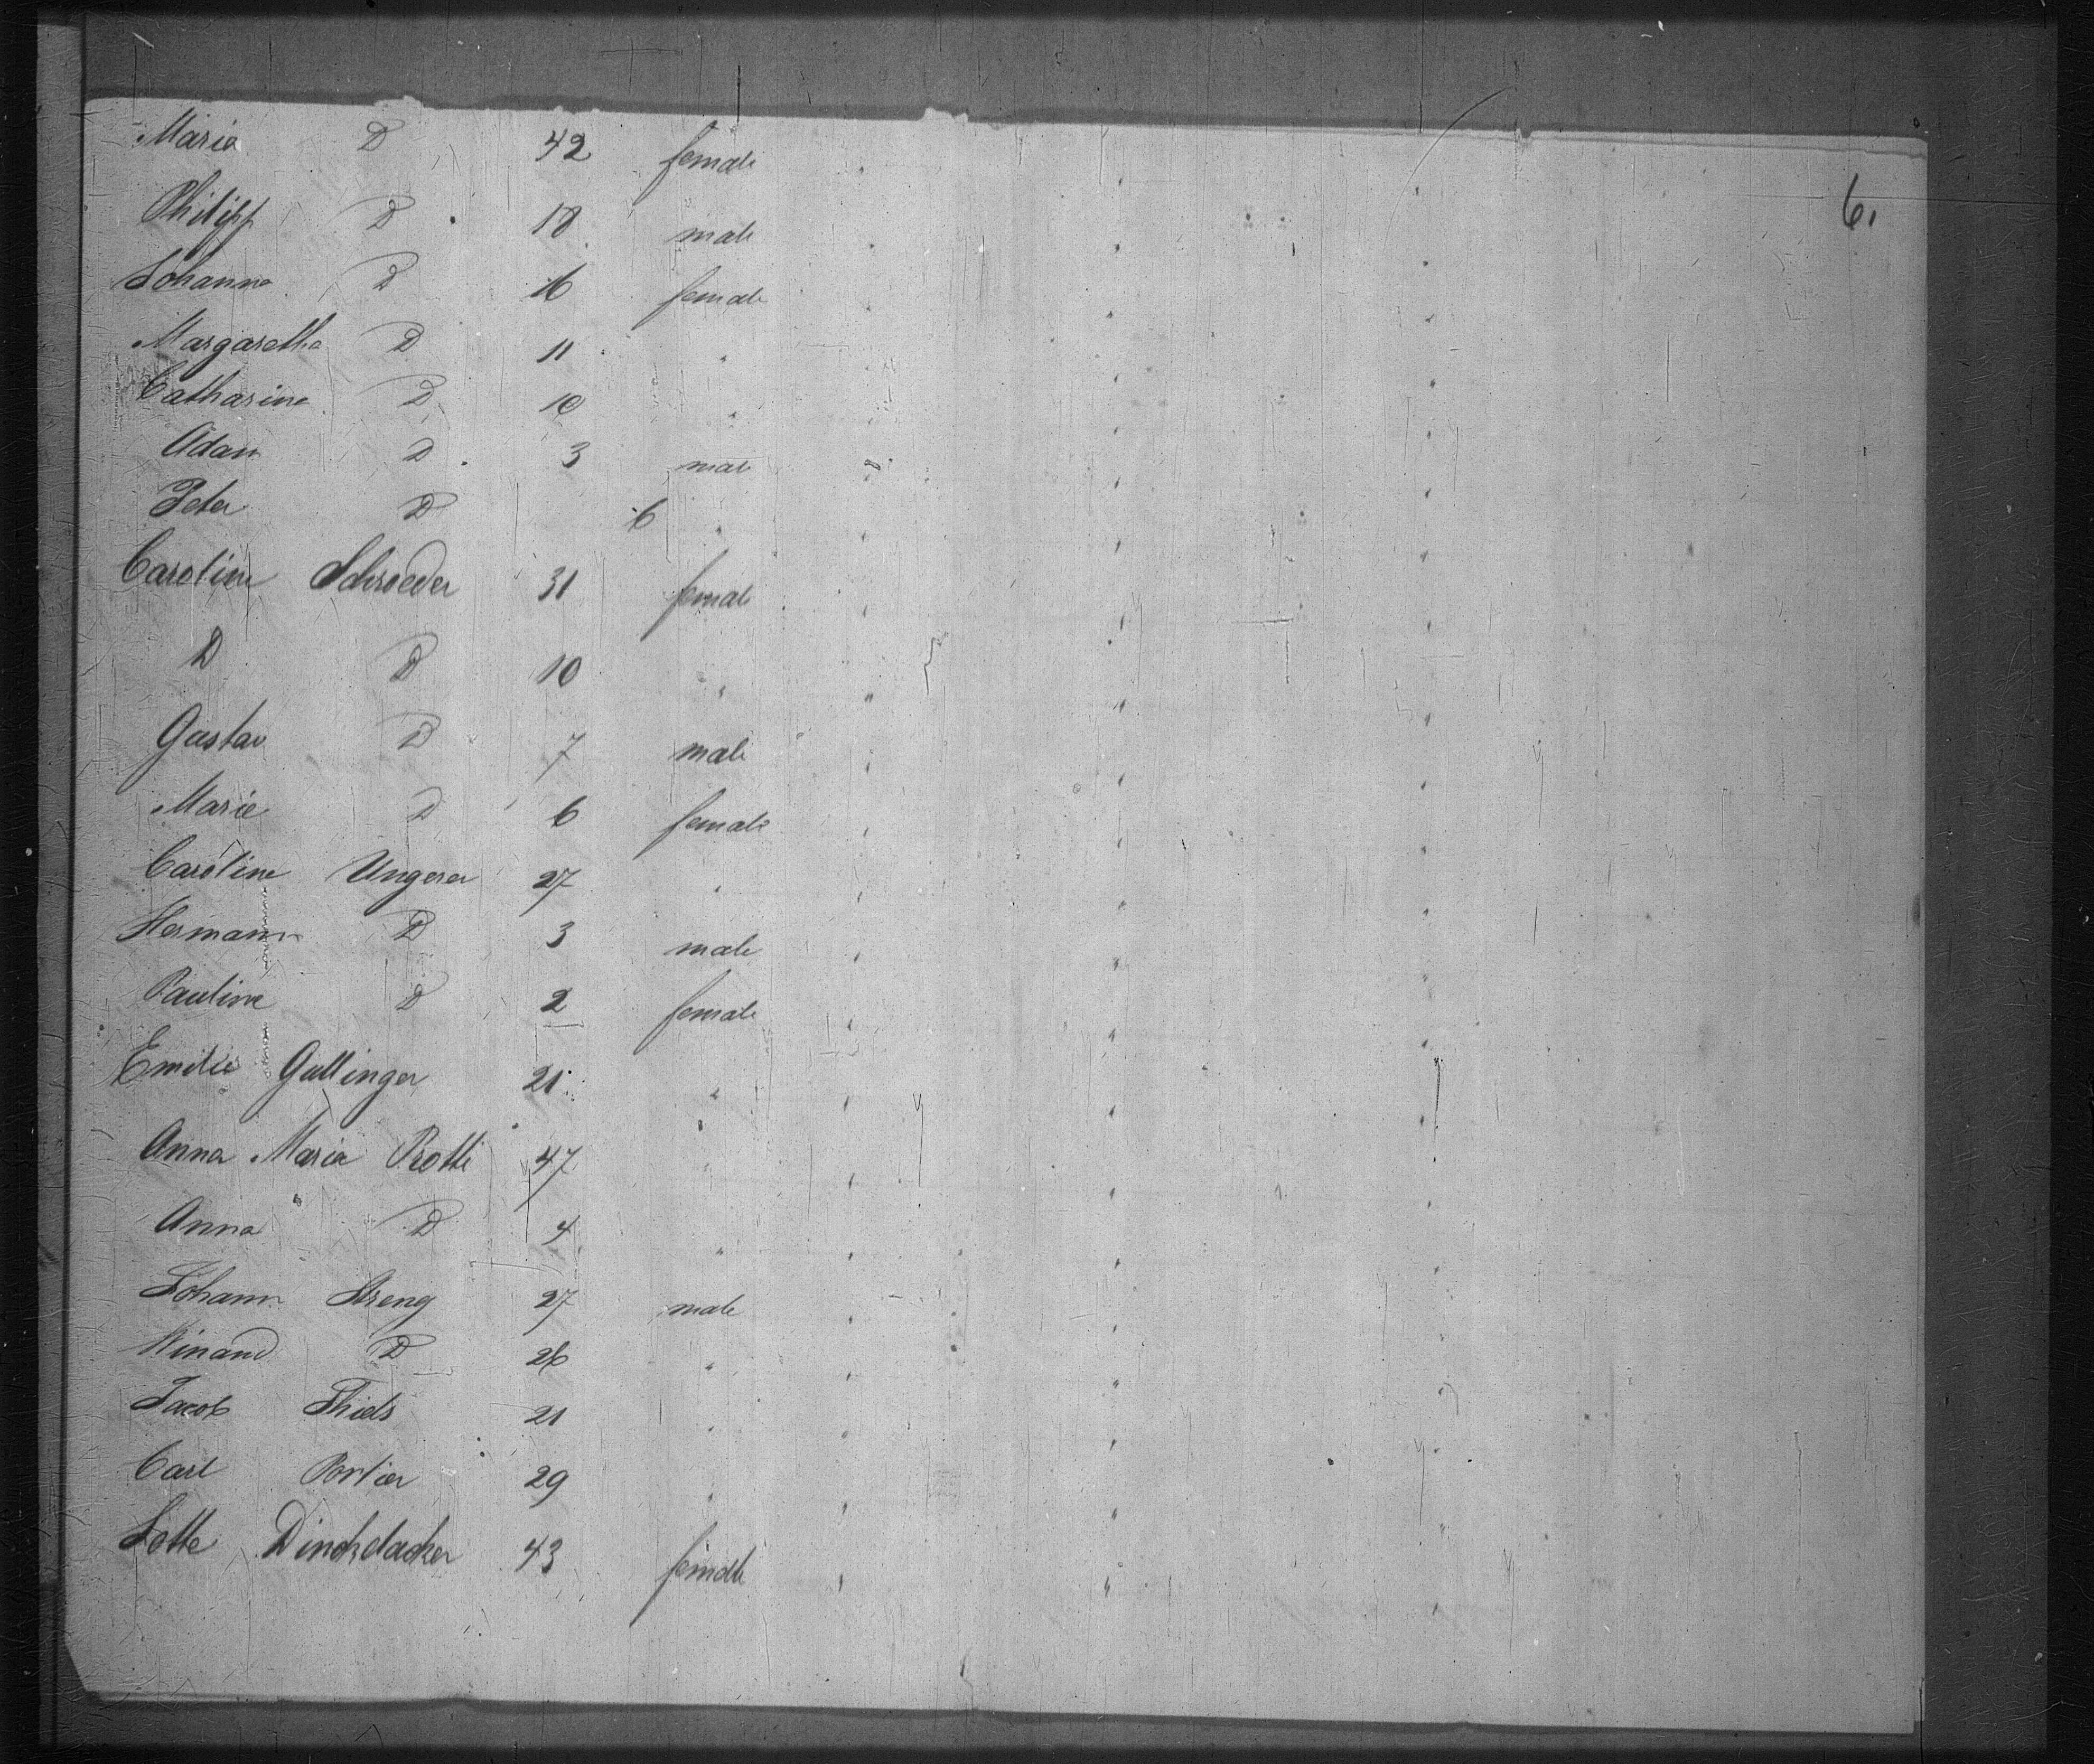 6.
Maria D 42 female " " "
Philipp D 18 male " " "
Johanna D 16 female " " "
Margaretha D 11 " " " "
Catharine D 10 " " " "
Adam D 3 male " " "
Peter D 6 " " " "
Caroline Schroeder 31 female " " "
D D 10 " " " "
Gustav D 7 male " " "
Marie D 6 female " " "
Caroline Ungerer 27 " " " "
Hermann D 3 male " " "
Pauline D 2 female " " "
Emilie Gullinger 21 " " " "
Anna Maria Rotti 47 " " " "
Anna D 4 " " " "
Johann Streng 27 male " " "
Winand D 26 " " " "
Jacob Thiels 21 " " " "
Carl Portier 29 " " " "
Lotte 43 female " " "